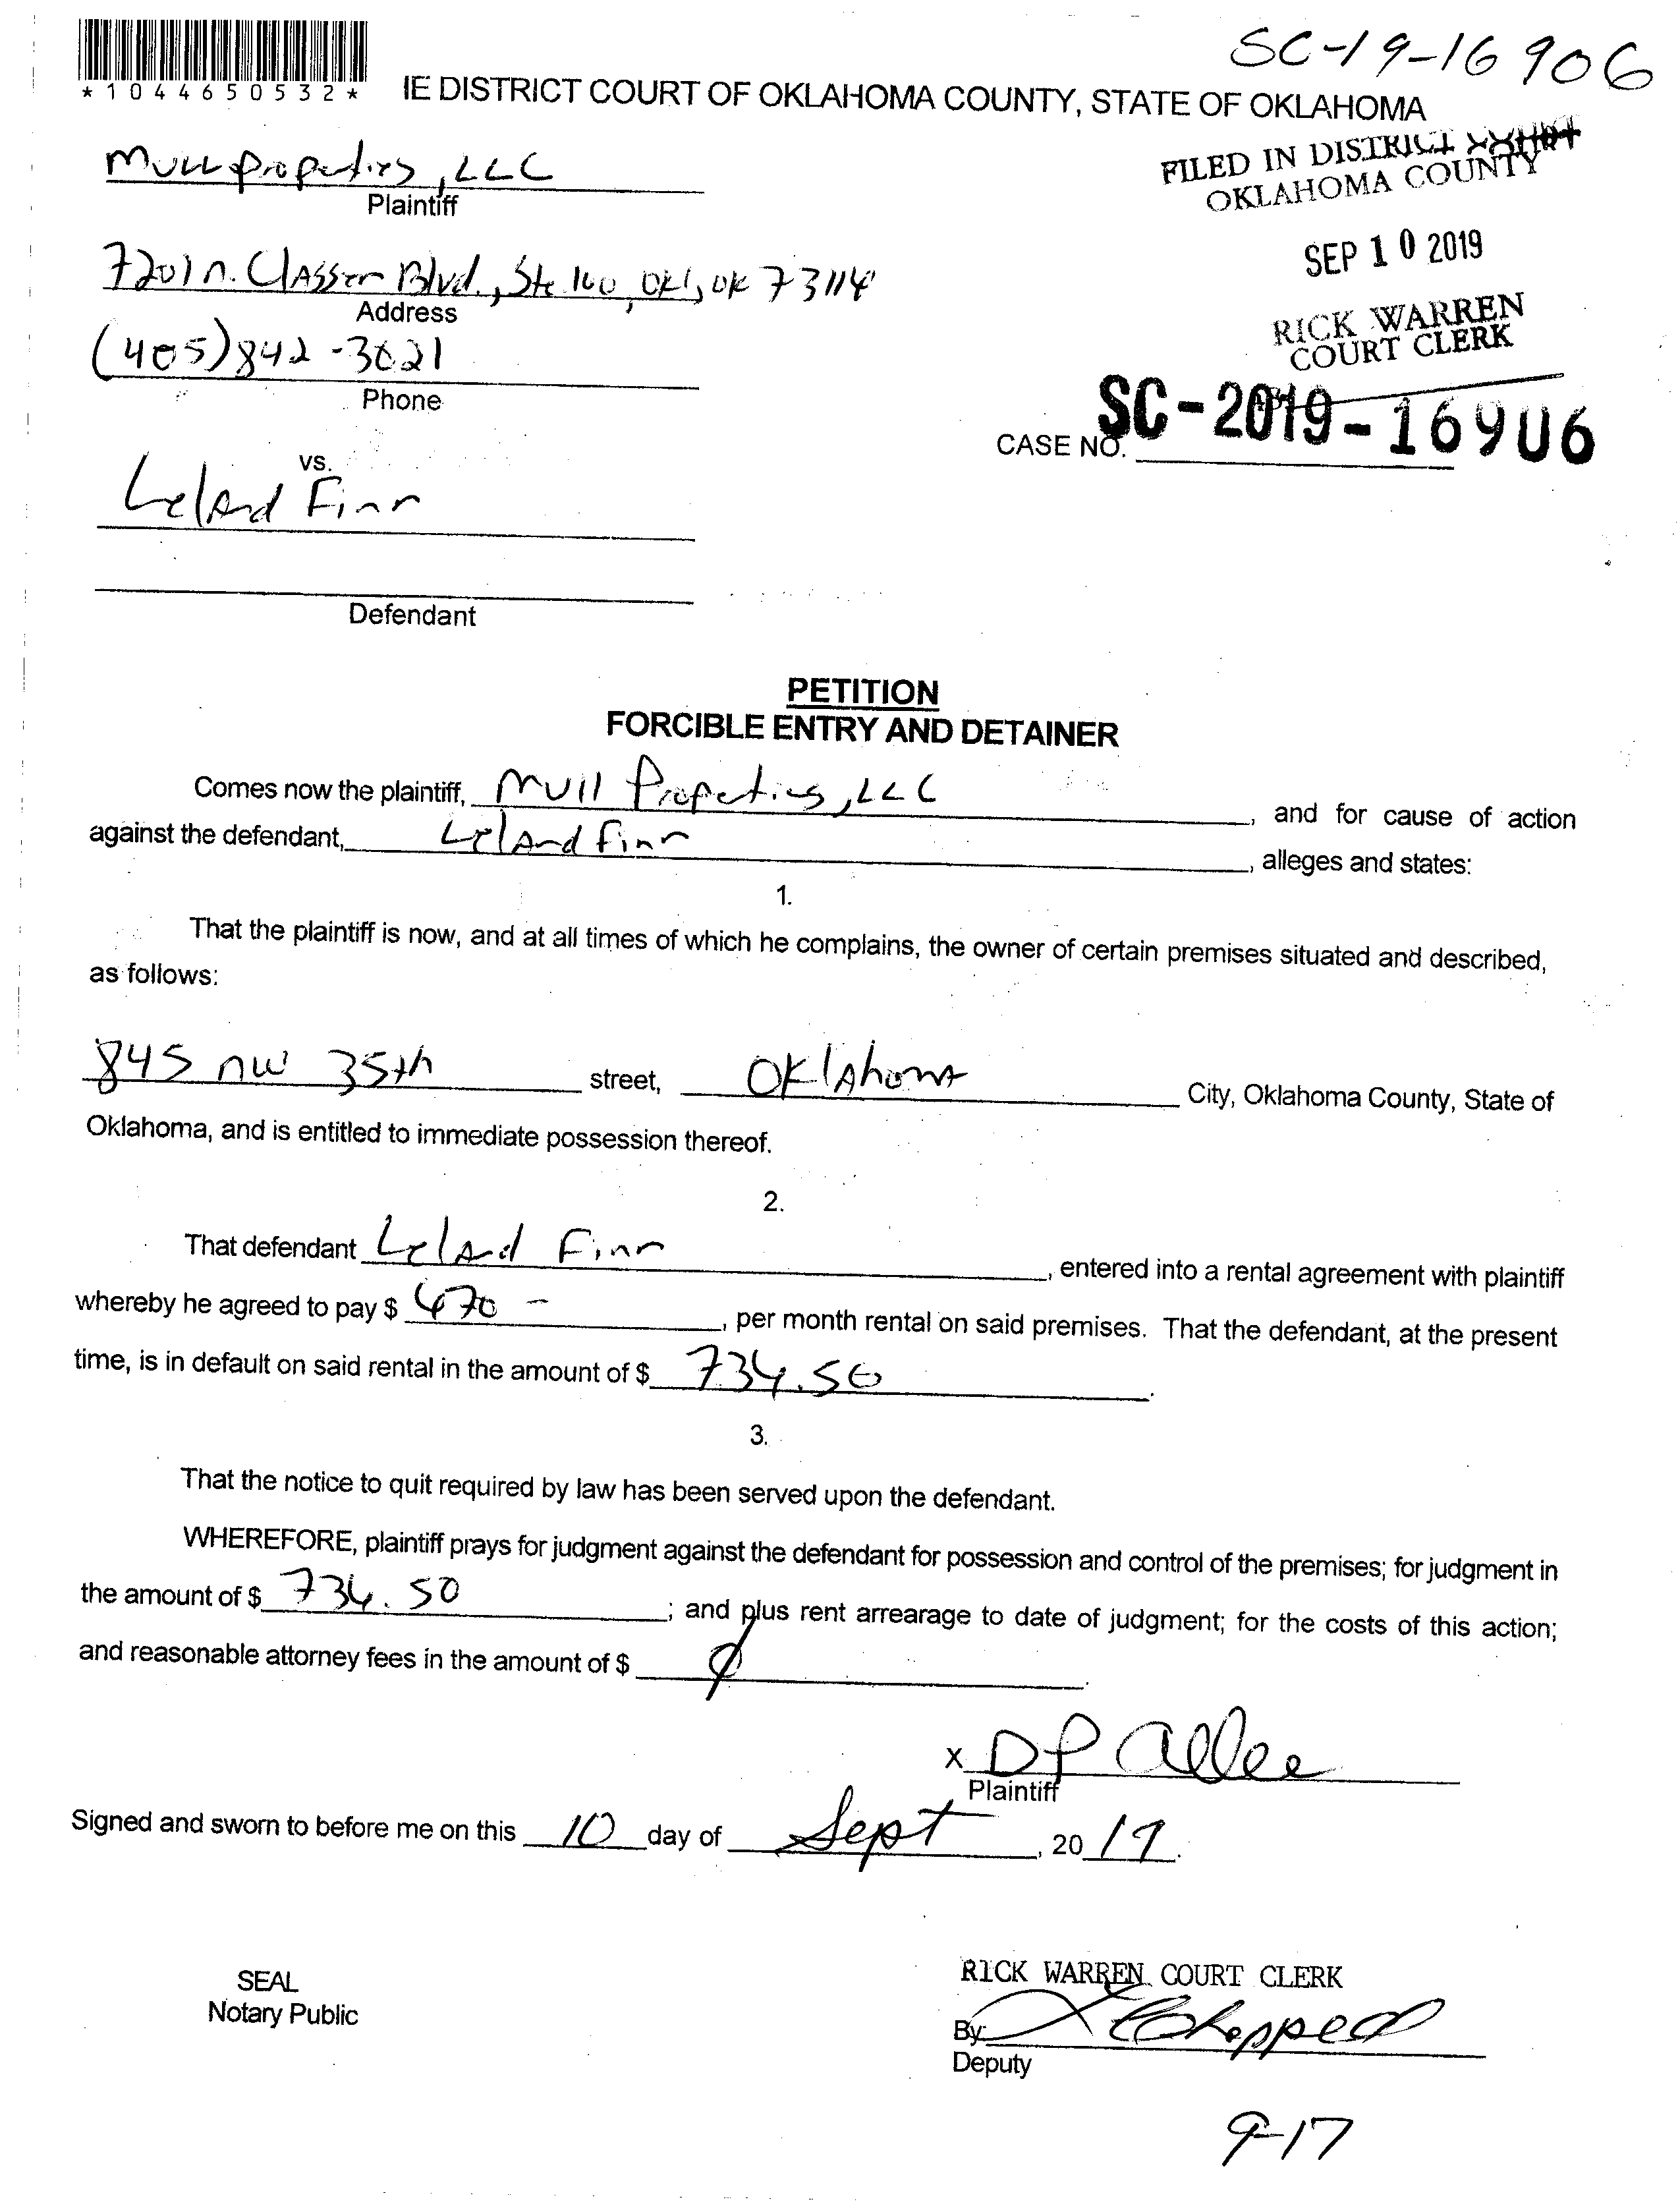 SC-19-16906
*1044650532*
IE DISTRICT COURT OF OKLAHOMA COUNTY, STATE OF OKLAHOMA
FILED IN DISTRICT COURT
OKLAHOMA COUNTY
Mull Properties, LLC
Plaintiff
SEP 10 2019
7201 n. Classen Blvd., Ste 160, OKC, OK 73114
Address
RICK WARREN
COURT CLERK
(405) 842-3621
Phone
CASE NO. SC-2019-16906
vs.
Leland Finn
Defendant
PETITION
FORCIBLE ENTRY AND DETAINER
Comes now the plaintiff, Mull Properties, LLC, and for cause of action
against the defendant, Leland Finn, alleges and states:
1.
That the plaintiff is now, and at all times of which he complains, the owner of certain premises situated and described,
as follows:
845 nw 35th street, Oklahoma City, Oklahoma County, State of
Oklahoma, and is entitled to immediate possession thereof.
2.
That defendant Leland Finn, entered into a rental agreement with plaintiff
whereby he agreed to pay $ 470 -, per month rental on said premises. That the defendant, at the present
time, is in default on said rental in the amount of $ 734.50.
3.
That the notice to quit required by law has been served upon the defendant.
WHEREFORE, plaintiff prays for judgment against the defendant for possession and control of the premises; for judgment in
the amount of $ 734.50; and plus rent arrearage to date of judgment; for the costs of this action;
and reasonable attorney fees in the amount of $ ∅.
X DP Allee
Plaintiff
Signed and sworn to before me on this 10 day of Sept, 2019.
SEAL
Notary Public
RICK WARREN COURT CLERK
By:
Deputy
9-17